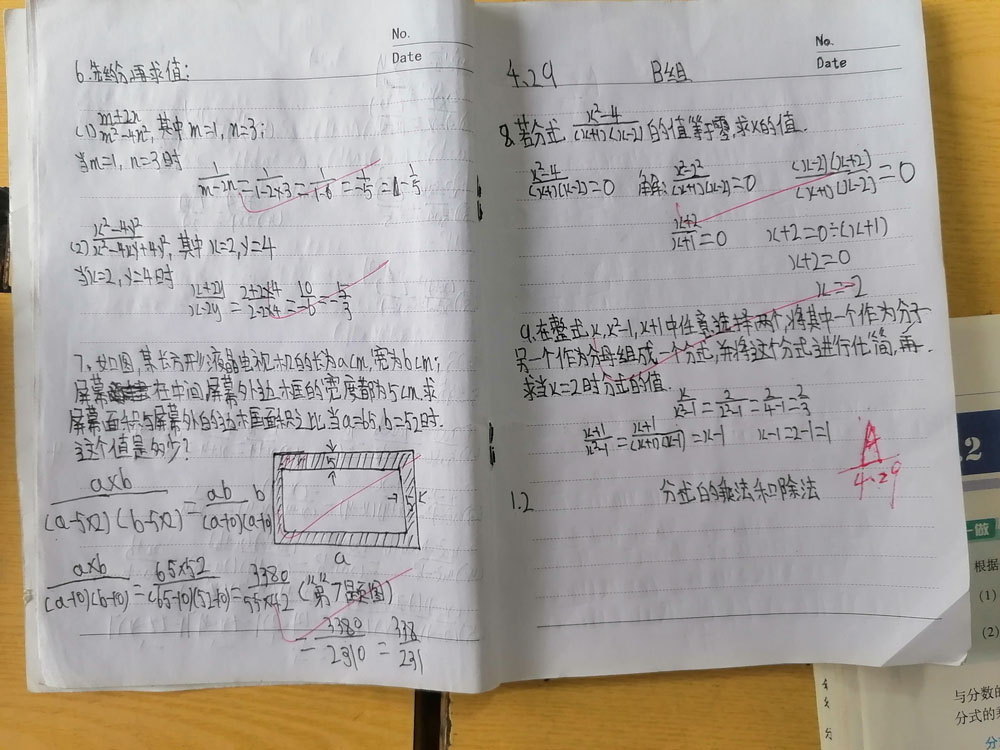 No.
Date
6.先约分,再求值:
(1) m+2n/m²-4n², 其中m=1, n=3;
当m=1, n=3时
1/m-2n=1/1-2×3=1/1-6=1/-5=-1/5
(2) x²-4y²/x²-4xy+4y², 其中x=2, y=4
当x=2, y=4时
x+2y/x-2y=2+2×4/2-2×4=10/-6=-5/3
7、如图,某长方形液晶电视机的长为acm,宽为bcm;
屏幕在中间,屏幕外边框的宽度都为5cm.求
屏幕面积与屏幕外的边框面积之比.当a=65,b=52时.
这个值是多少?
a×b/(a-5×2)(b-5×2)=ab/(a-10)(a-10)
b
5
5
a
a×b/(a-10)(b-10)=65×52/(65-10)(52-10)=3380/55×42
(第7题图)
=3380/2310=338/231
No.
Date
4.29 B组
8.若分式 x²-4/(x+1)(x-2) 的值等于零,求x的值.
x²-4/(x+1)(x-2)=0 解: x²-2²/(x+1)(x-2)=0 (x-2)(x+2)/(x+1)(x-2)=0
x+2/x+1=0 x+2=0÷(x+1)
x+2=0
x=-2
9.在整式,x,x²-1,x+1中任意选择两个,将其中一个作为分子
另一个作为分母组成一个分式,并将这个分式进行化简,再
求当x=2时分式的值.
x/x²-1=2/2²-1=2/4-1=2/3
x+1/x²-1=x+1/(x+1)(x-1)=x-1 x-1=2-1=1
A
4.29
1.2 分式的乘法和除法
.2
一做
根据
(1)
(2)
与分数的
分式的乘